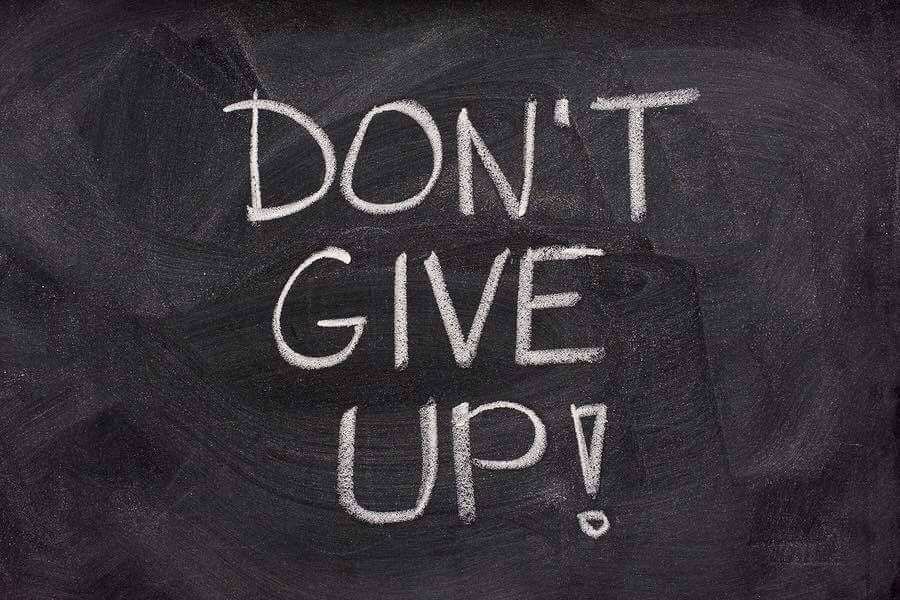 DON'T
GIVE
UP!